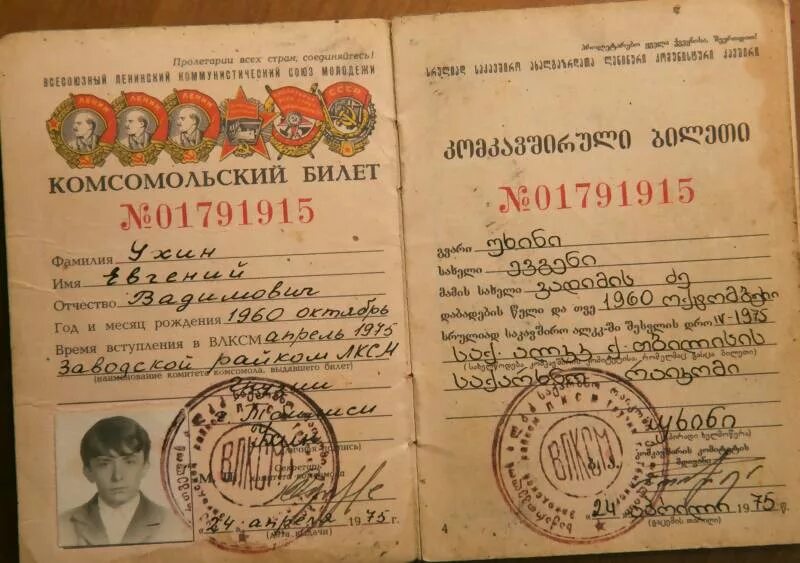 Пролетарии всех стран, соединяйтесь!
ВСЕСОЮЗНЫЙ ЛЕНИНСКИЙ КОММУНИСТИЧЕСКИЙ СОЮЗ МОЛОДЕЖИ
ЛЕНИН ЛЕНИН ЛЕНИН СССР
КОМСОМОЛЬСКИЙ БИЛЕТ
№01791915
Фамилия Ухин
Имя Евгений
Отчество Вадимович
Год и месяц рождения 1960 октябрь
Время вступления в ВЛКСМ апрель 1975
Заводской райком ЛКСМ
(наименование комитета комсомола, выдавшего билет)
Грузии
г. Тбилиси
(личная подпись)
Секретарь
М. П. комитета комсомола
ВЛКСМ
24 апреля 1975 г.
(дата выдачи)
პროლეტარებო ყველა ქვეყნისა, შეერთდით!
სრულიად საკავშირო ახალგაზრდათა ლენინური კომუნისტური კავშირი
კომკავშირული ბილეთი
№01791915
გვარი უხინი
სახელი ევგენი
მამის სახელი ვადიმის ძე
დაბადების წელი და თვე 1960 ოქტომბერი
სრულიად საკავშირო ალკკ-ში შესვლის დრო IV-1975
საქ. ალკკ ქ. თბილისის
(სახელწოდება კომკავშირის კომიტეტისა, რომელმაც გასცა ბილეთი)
საქარხნო რაიკომი
უხინი
(პირადი ხელმოწერა)
კომკავშირის კომიტეტის
მდივანი
ბ. ა.
ВЛКСМ
24 აპრილი 1975
(გაცემის თარიღი)
4